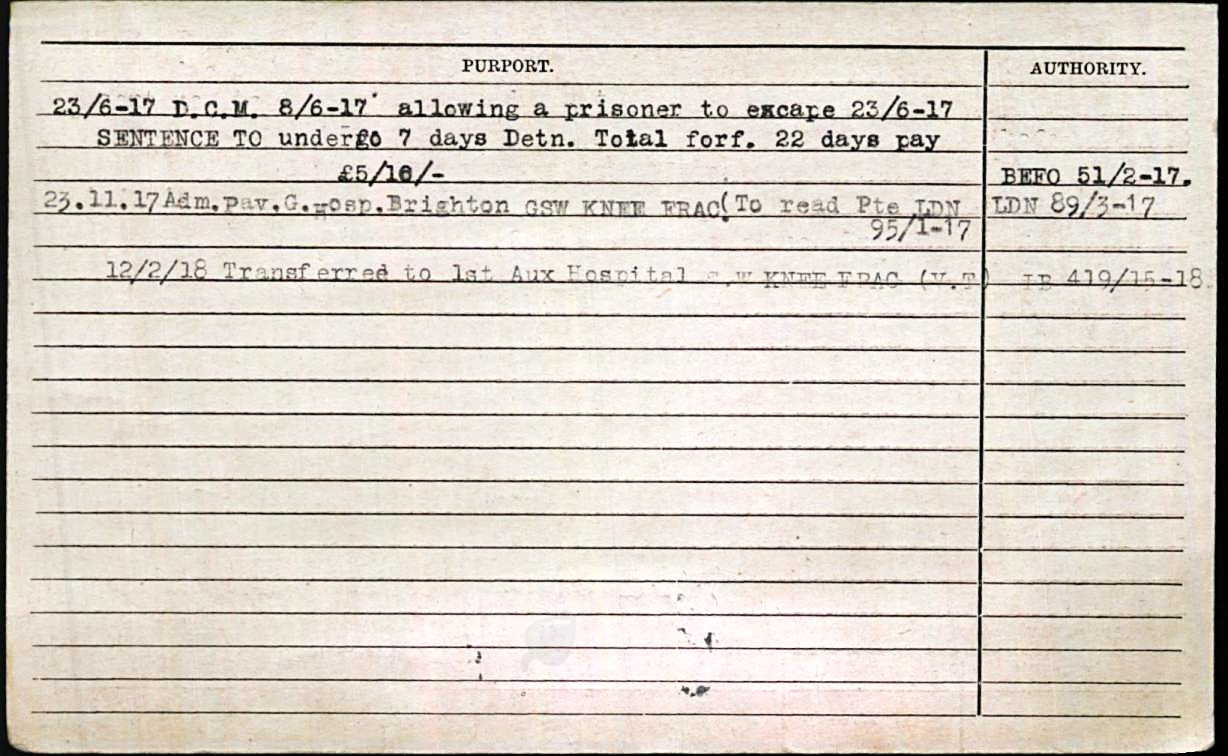 PURPORT. AUTHORITY.
23/6-17 D.C.M. 8/6-17 allowing a prisoner to excape 23/6-17
SENTENCE TO undergo 7 days Detn. Total forf. 22 days pay
£5/10/- BEFO 51/2-17.
23.11.17 Adm.Pav.G.Hosp.Brighton GSW KNEE FRAC(To read Pte LDN LDN 89/3-17
95/1-17
12/2/18 Transferred to 1st Aux Hospital KNEE FRAC (V.T) IB 419/15-18